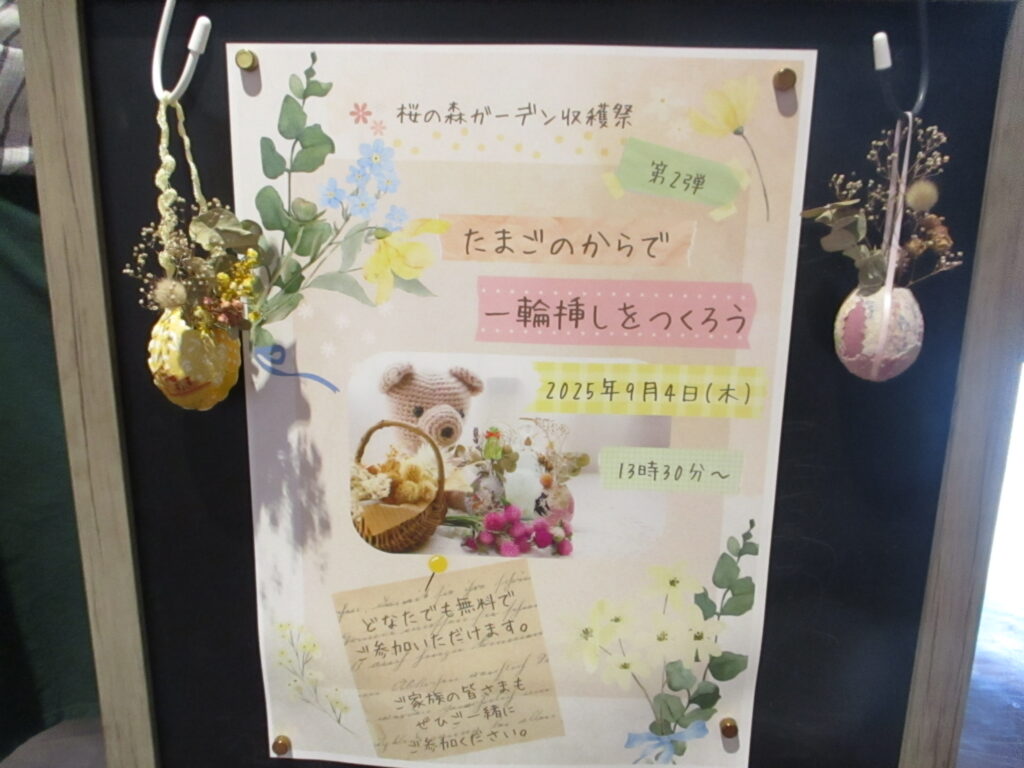 桜の森ガーデン収穫祭
第2弾
たまごのからで
一輪挿しをつくろう
2025年9月4日(木)
13時30分～
どなたでも無料で
ご参加いただけます。
ご家族の皆さまも
ぜひご一緒に
ご参加ください。